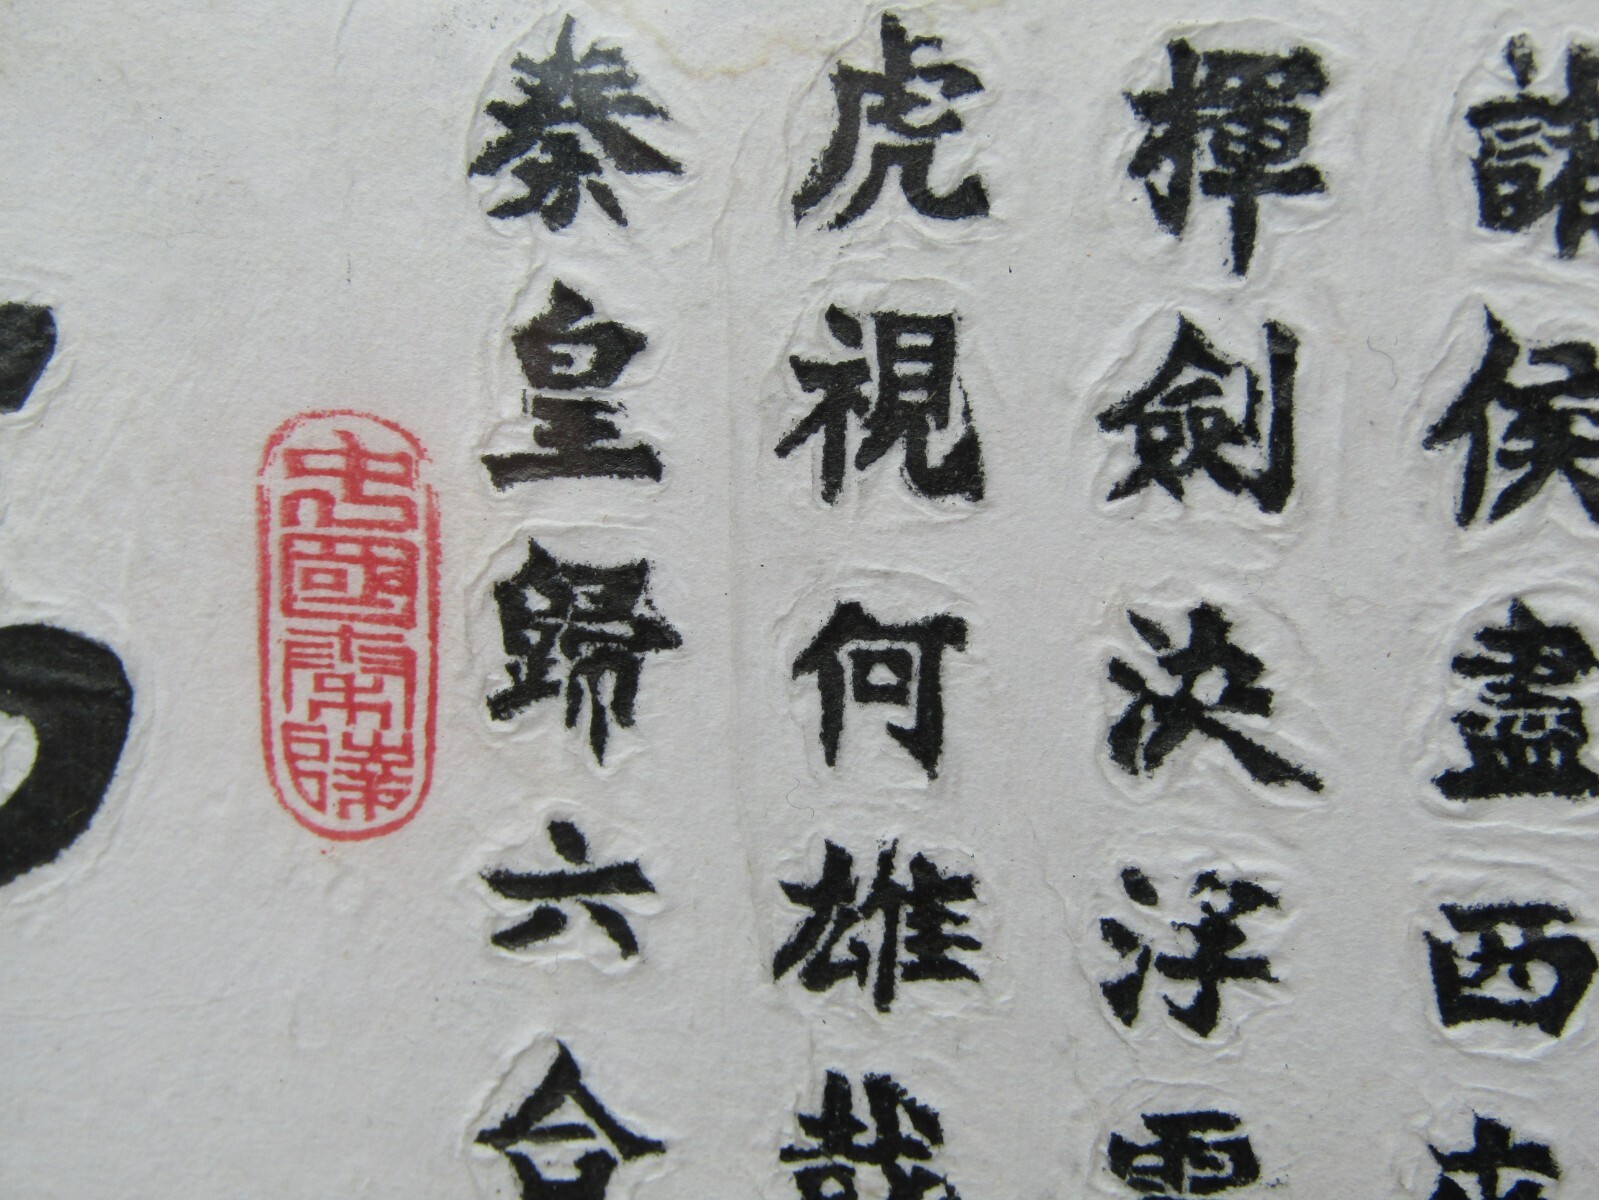 秦皇歸六合
虎視何雄哉
揮劍決浮雲
諸侯盡西來